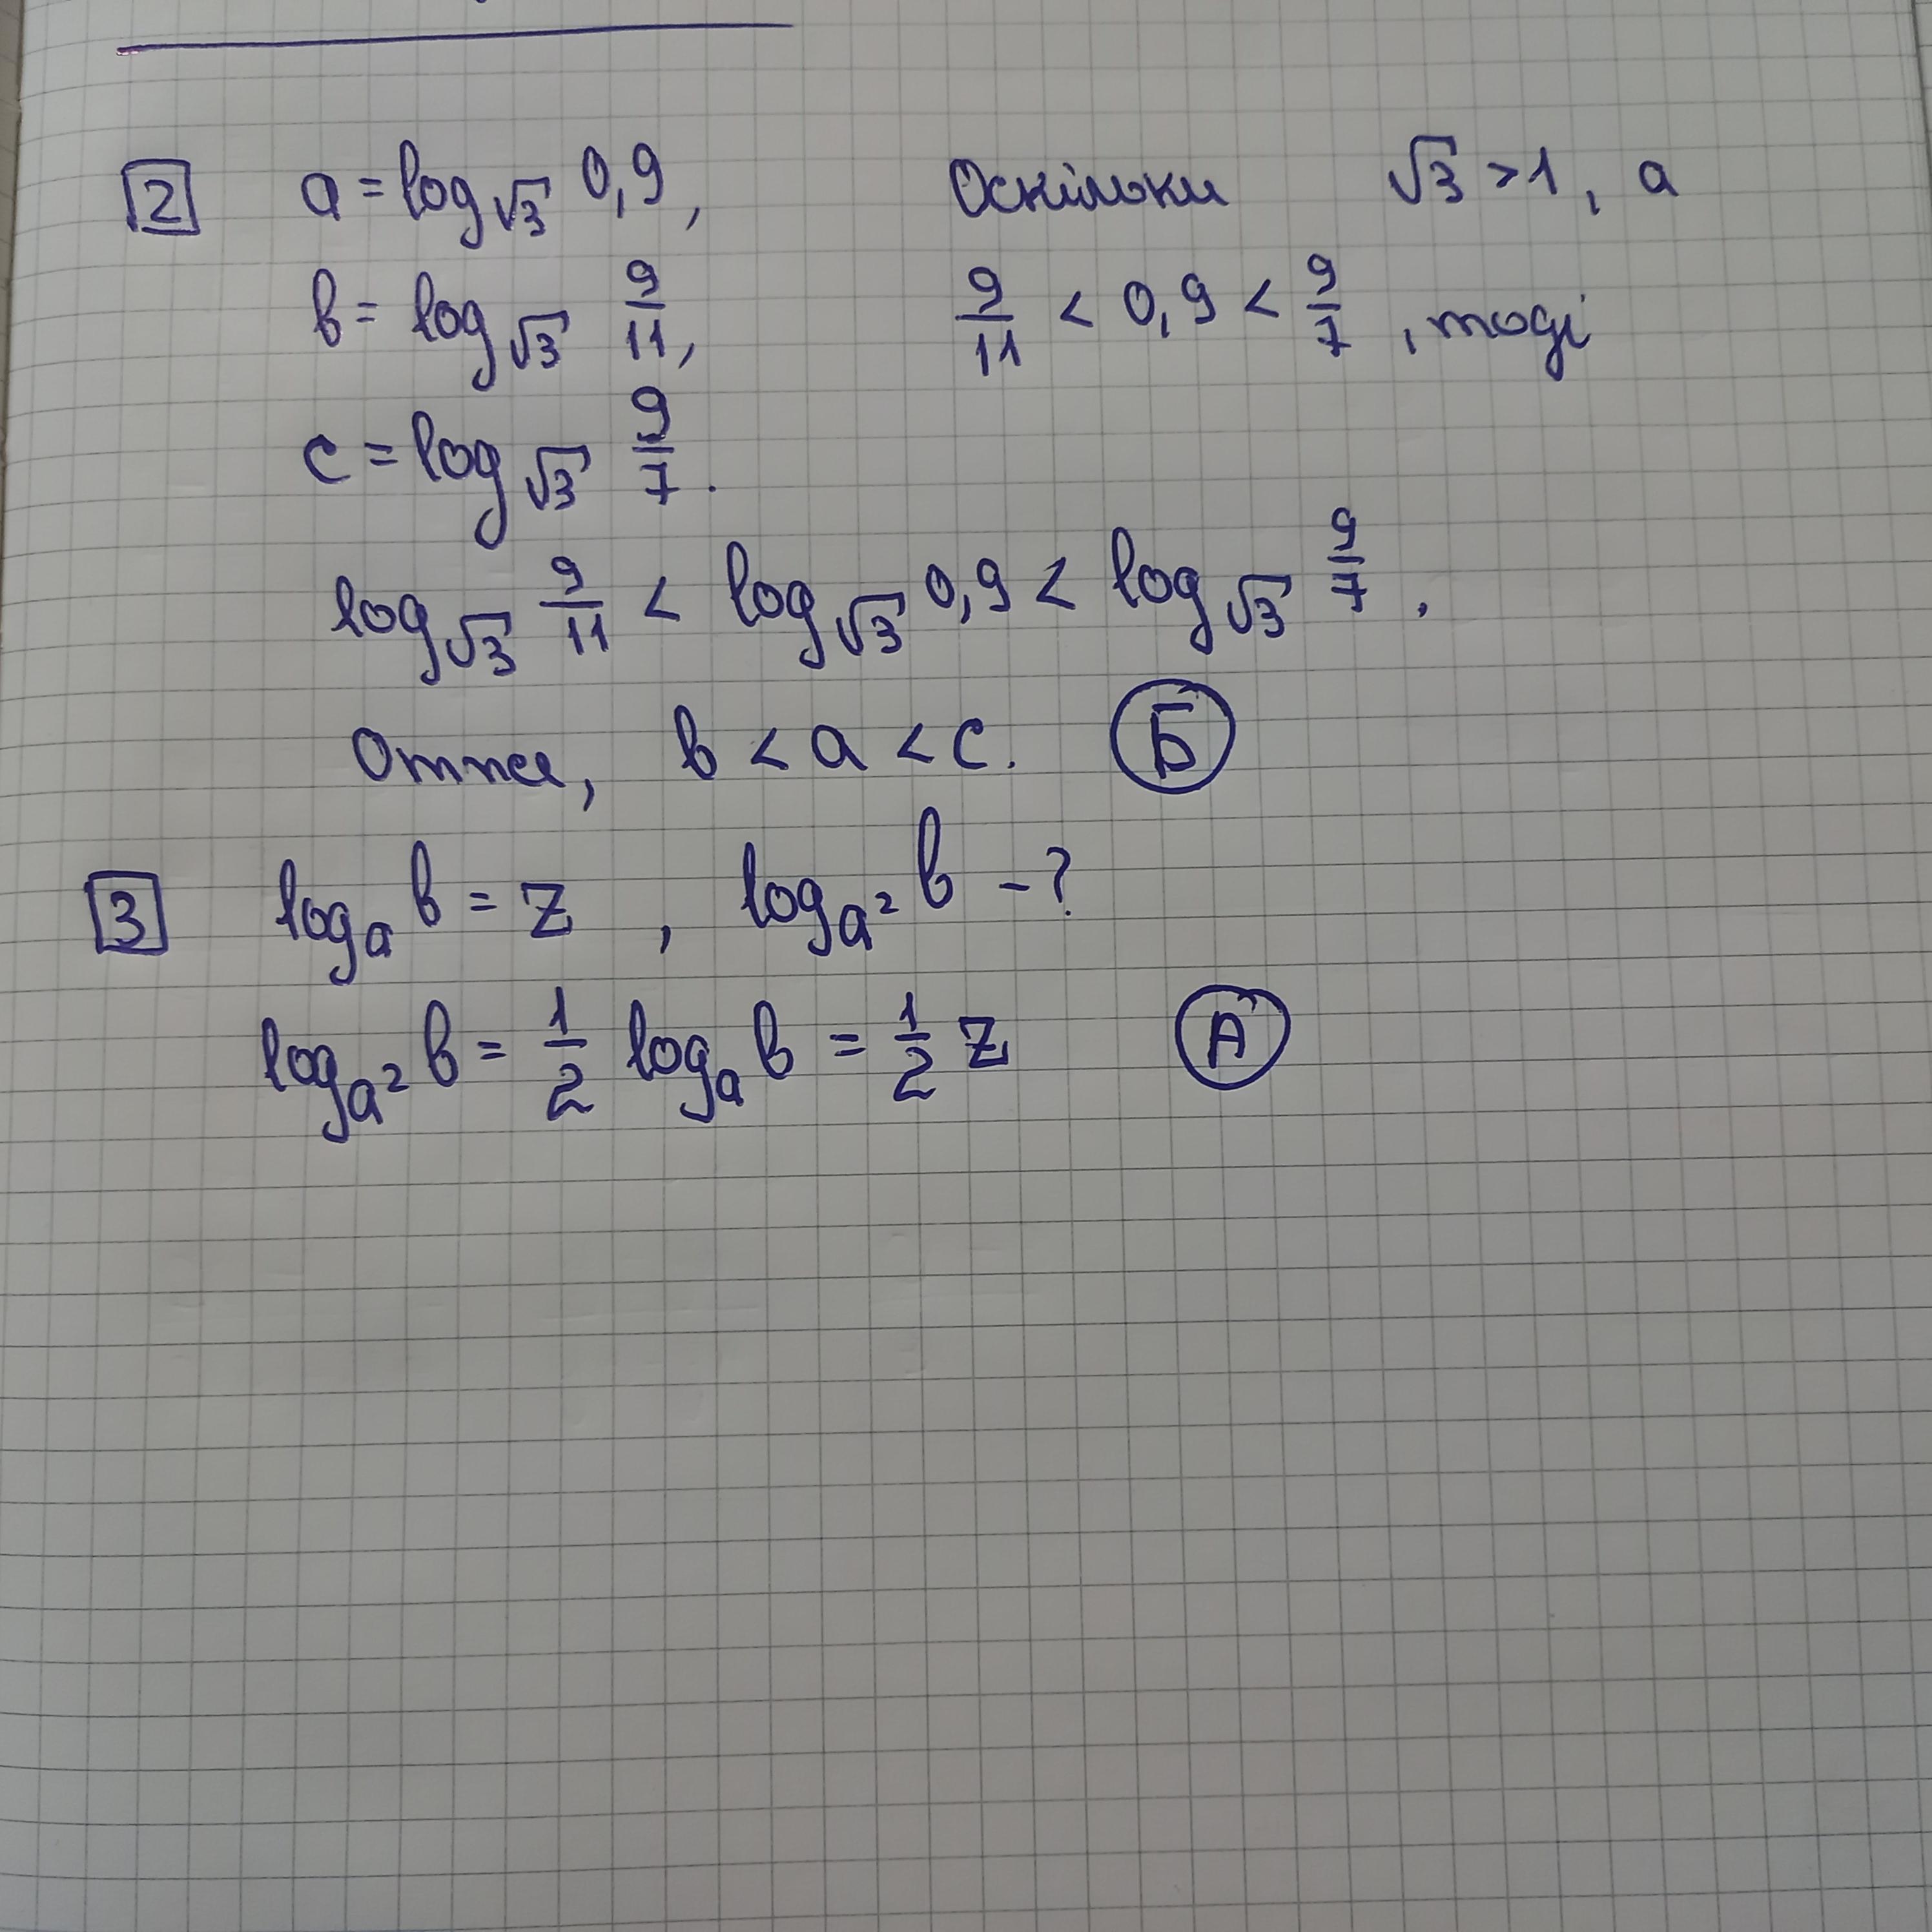 2 a = log_√3 0,9, Оскільки √3 > 1, а
b = log_√3 9/11, 9/11 < 0,9 < 9/7, тоді
c = log_√3 9/7.
log_√3 9/11 < log_√3 0,9 < log_√3 9/7,
Отже, b < a < c. Б
3 log_a b = z, log_a² b - ?
log_a² b = 1/2 log_a b = 1/2 z А